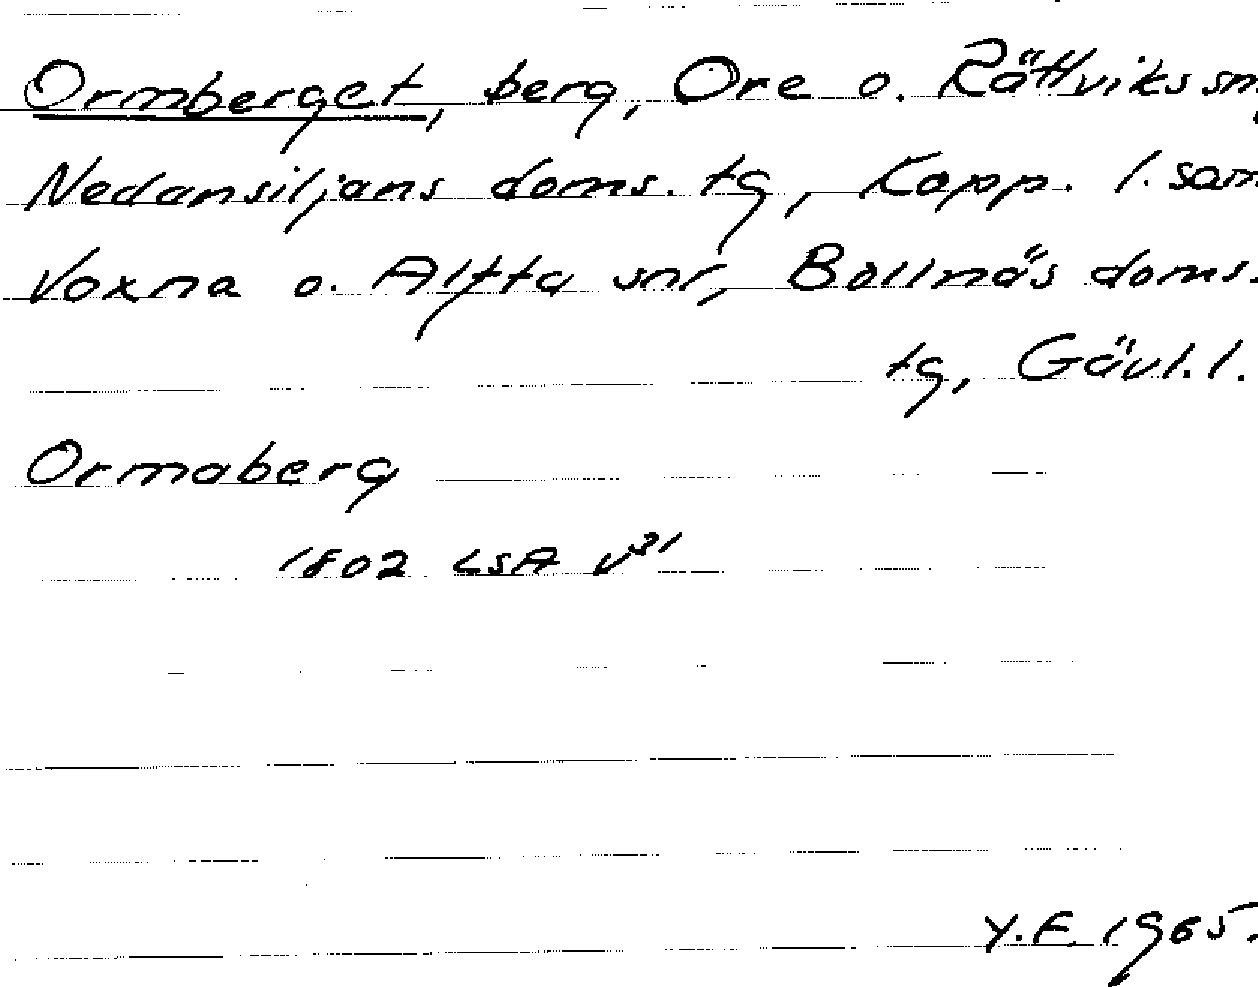 Ormberget, berg, Ore o. Rättviks snr,
Nedansiljans doms. tg, Kopp. l. samt
Voxna o. Alfta snr, Bollnäs doms.
tg, Gävl. l.
Ormaberg
1802 LSA V31
Y.F. 1965.